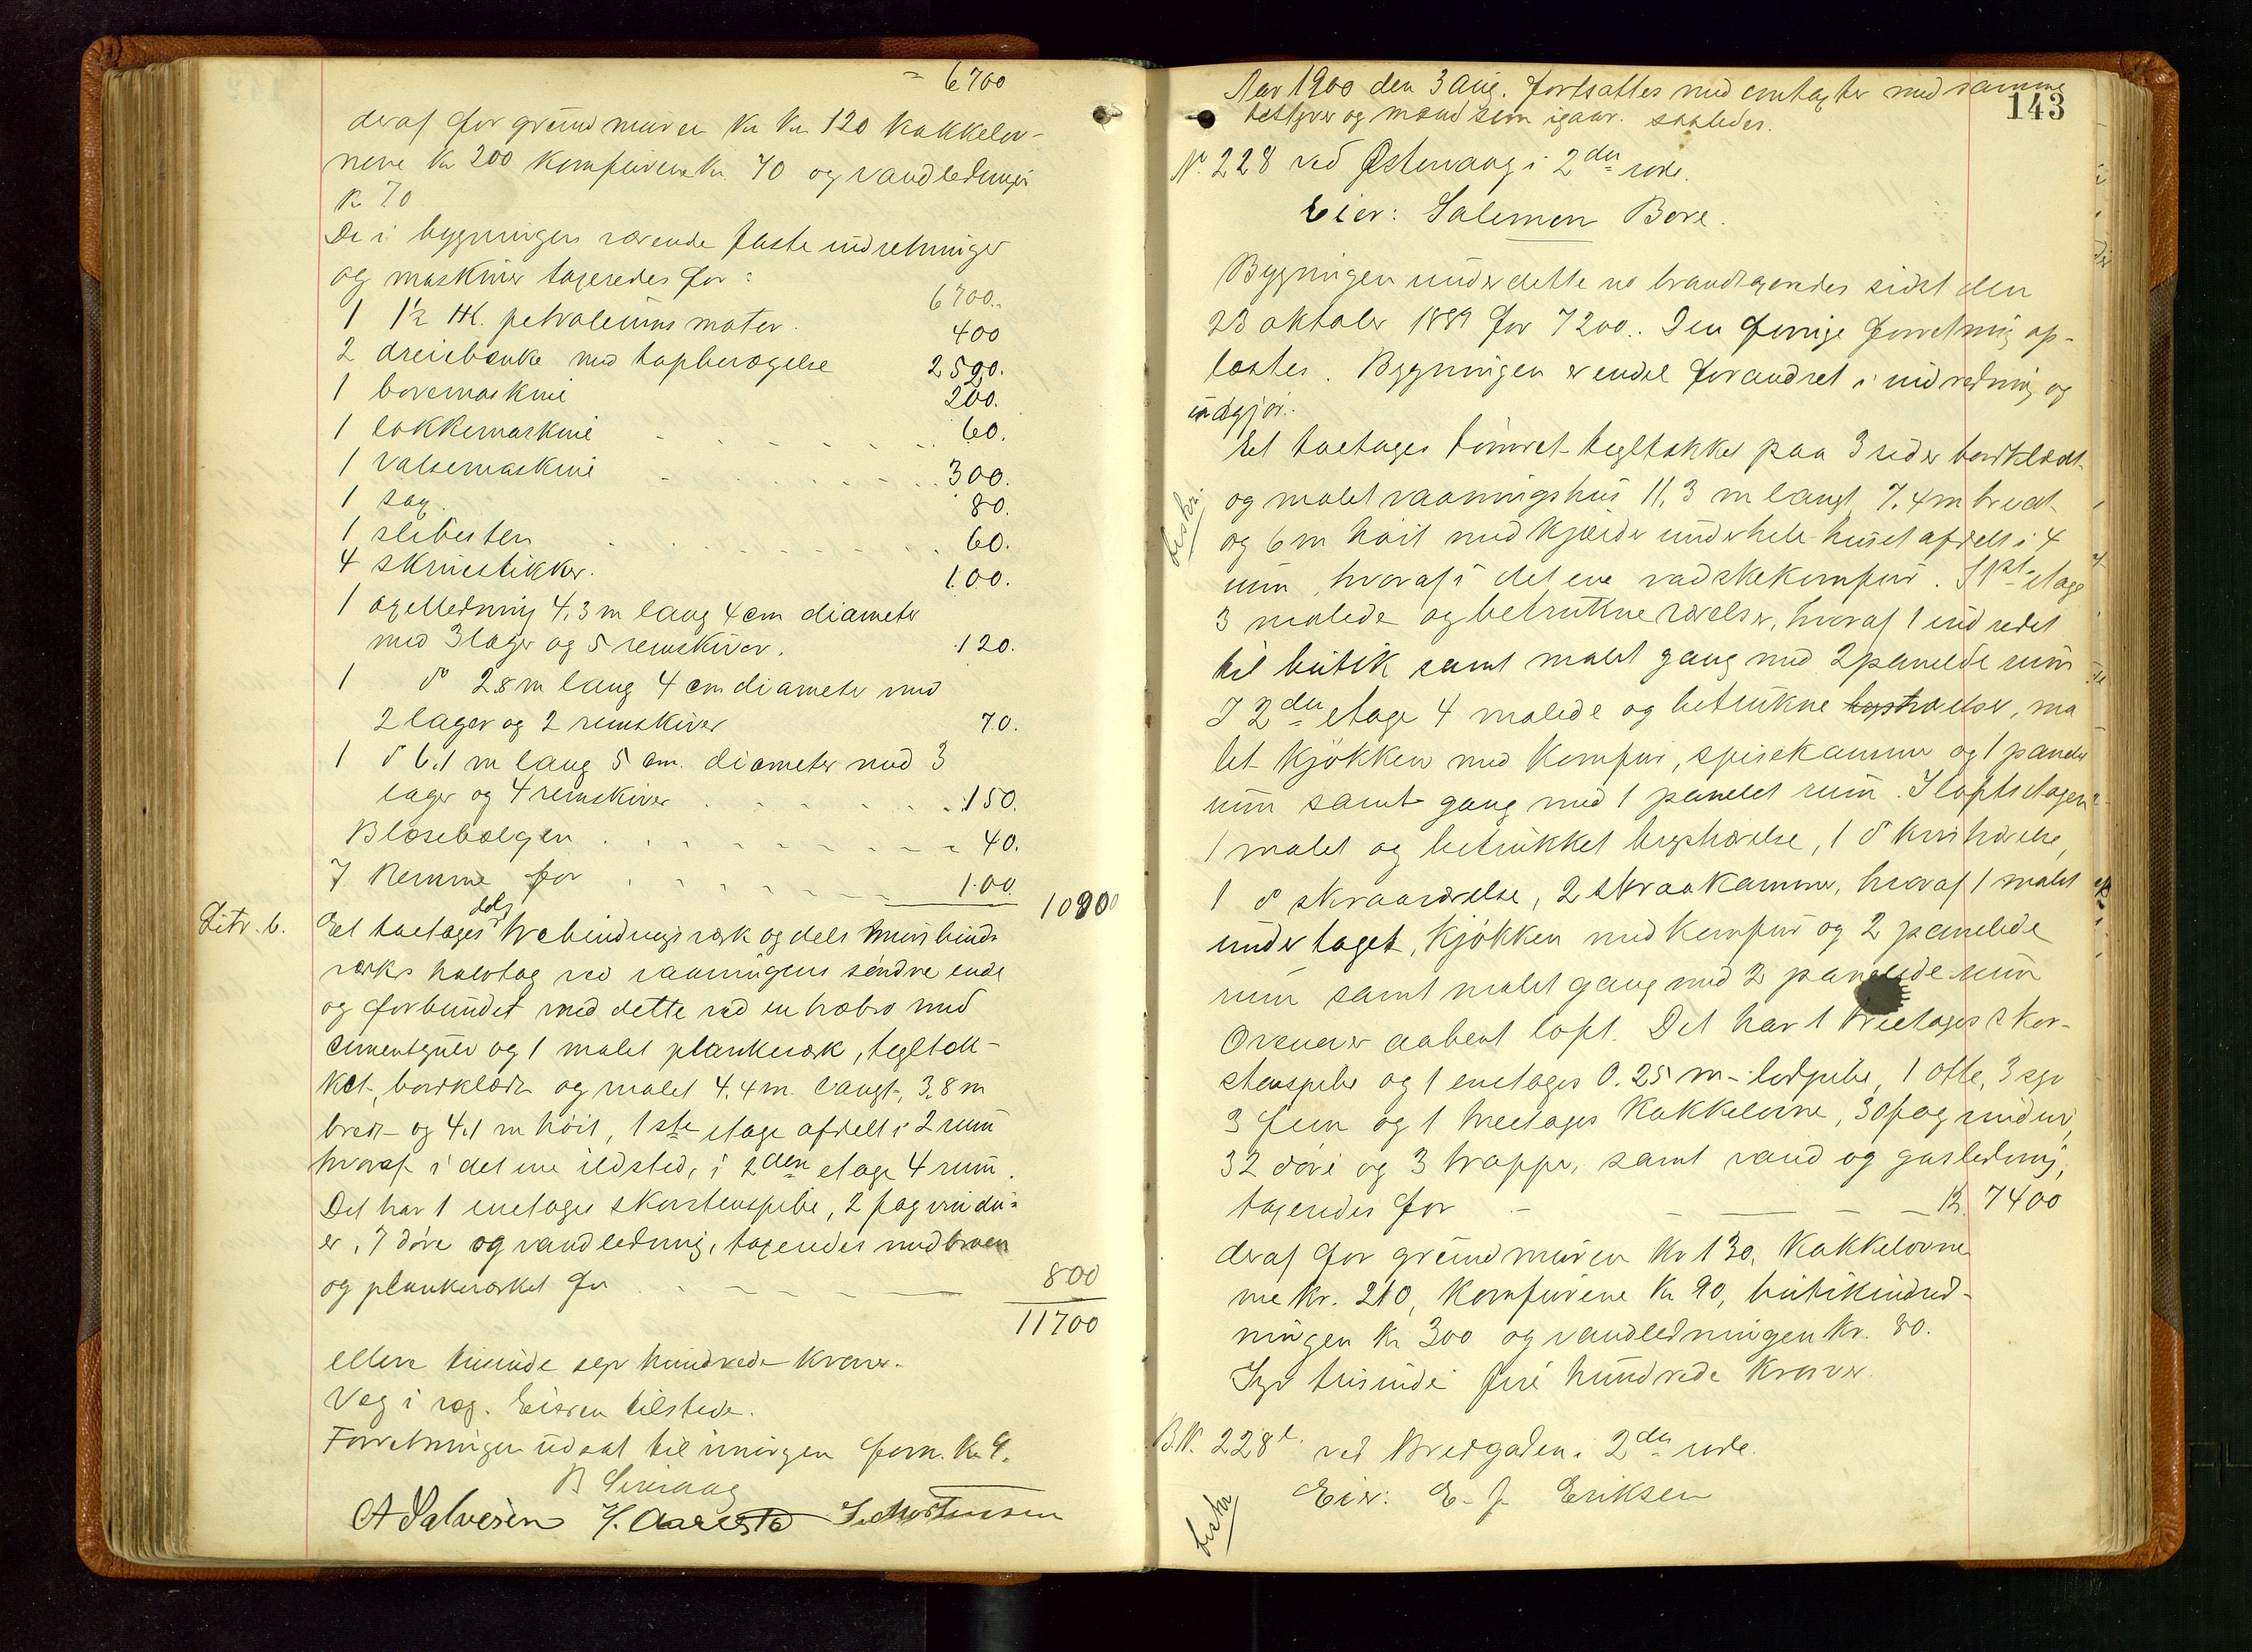 = 6700
deraf for grundmuren Kr 120 Kakkelov-
nene Kr 200 Komfurene Kr. 70 og vandledningen
K 70
De i bygningen værende faste indretninger
og maskiner taxeredes for:
6700.-
1 1½ HK. petroleumsmotor. 400
2 dreiebænke med tapbevægelse 2590.
1 boremaskine 200.
1 lokkemaskine 60.
1 Valsemaskine 300.
1 sag 80.
1 slibesten 60.
4 skruestikker. 100.
1 axelledning 4,3 m lang 4 cm diameter
med 3 lager og 5 remskiver. 120.
1 do 2,8 m lang 4 cm diameter med
2 lager og 2 remskiver 70.
1 do 6,1 m lang 5 cm. diameter med 3
lager og 4 remskiver 150.
Blæsebælgen 40.
7 Remme for 100. 10900
Litr. b. Et toetages dels trebindingsværk og dels murbinds
værks halvtag ved vaaningens søndre ende
og forbundet med dette ved en træbro med
cementgulv og 1 malet plankeværk, tegltæk-
ket, bordklædt og malet 4,4 m. langt, 3,8 m
bredt og 4,1 m høit, 1ste etage afdelt i 2 rum
hvoraf i det ene ildsted, i 2den etage 4 rum.
Det har 1 enetages skorstenspibe, 2 fag vindu-
er, 7 døre og vandledning, taxeredes med broen
og plankeværket for 800
11700
elleve tusinde syv hundrede kroner.
Veg i væg. Eieren tilstede.
Forretningen udsat til imorgen form. Kl 9.
A Salvesen H. Aarestad J. Mortensen
143
Aar 1900 den 3 Aug. fortsattes med omtaxter med samme
bestyrer og mænd som igaar. saaledes.
No. 228 ved Østervaag i 2den rode.
Eier: Salemon Bore.
Bygningen under dette no brandtaxeredes sidst den
23 oktober 1889 for 7200. Den forrige forretning op-
læstes. Bygningen er endel forandret i indredning og
udgjør:
Et toetages tømret tegltækket paa 3 sider bordklædt
og malet vaaningshus 11,3 m langt 7,4 m bredt
og 6 m høit med kjælder under hele huset afdelt i 4
rum, hvoraf i det ene vadskekomfur. I 1ste etage
3 malede og betrukne værelser, hvoraf 1 indredet
til butik samt malet gang med 2 panelede rum
I 2den etage 4 malede og betrukne værelser, ma
let kjøkken med komfur, spisekammer og 1 panelet
rum samt gang med 1 panelet rum. I loftsetagen
1 malet og betrukket brystværelse, 1 do kvistværelse,
1 do skraaværelse, 2 skraakammer, hvoraf 1 malet
under taget, kjøkken med komfur og 2 panelede
rum samt malet gang med 2 panelede rum
Ovenover aabent loft. Det har 1 treetages skor-
stenspibe og 1 enetages 0.25 m - ledpibe, 1 otte, 3 syv
3 fem og 1 treetages Kakkelovne, 30 fag vinduer,
32 døre og 3 trapper, samt vand og gasledning,
taxeredes for K. 7400
deraf for grundmuren Kr 130, Kakkelovne
ne kr. 210, Komfurene Kr 90, butikindred-
ningen Kr 300 og vandledningen Kr. 80.
Syv tusinde fire hundrede Kroner.
B.N. 228b ved Bredgaden i 2den rode.
Eier: E. J. Eriksen